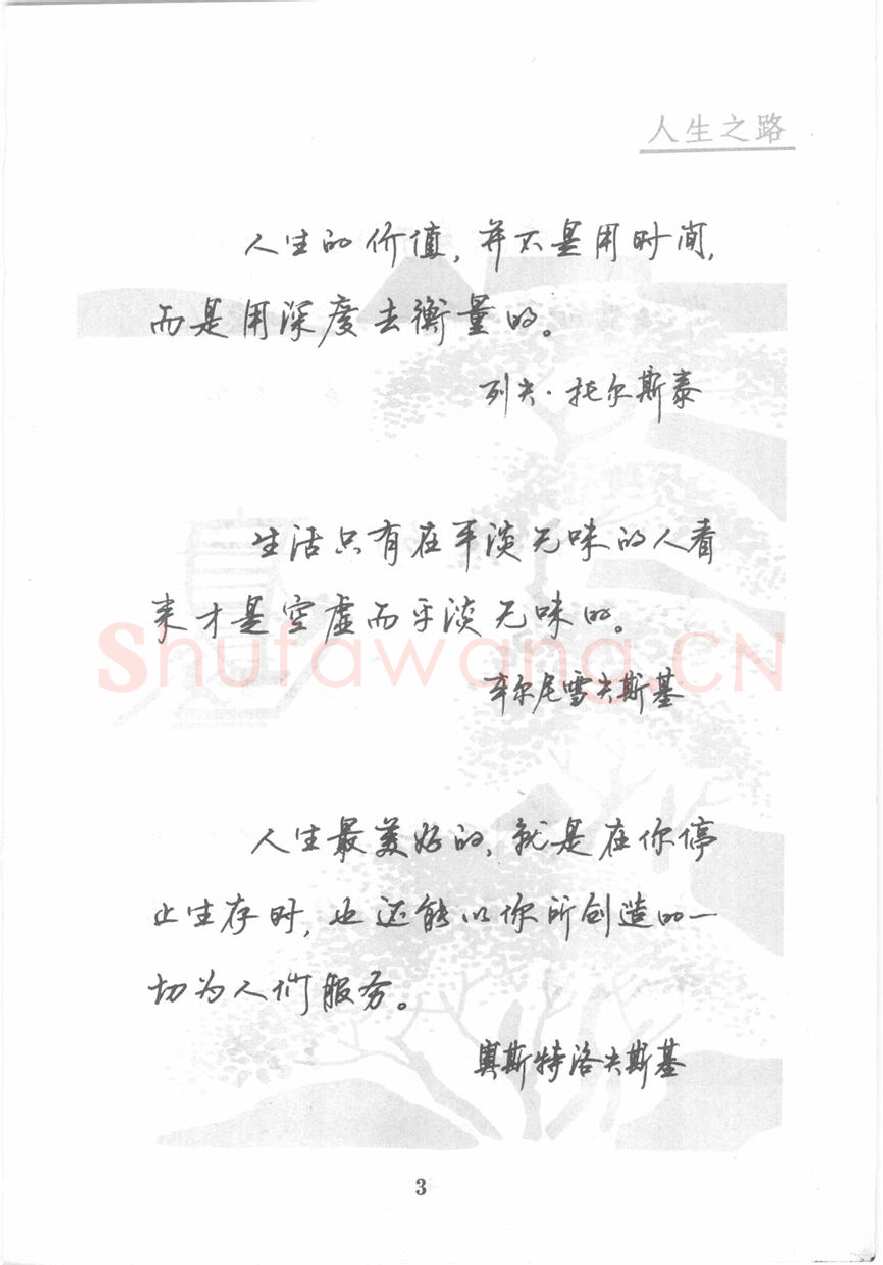 人生之路
人生的价值，并不是用时间，
而是用深度去衡量的。
列夫·托尔斯泰
生活只有在平淡无味的人看
来才是空虚而平淡无味的。
车尔尼雪夫斯基
Shufawang.CN
人生最美好的，就是在你停
止生存时，也还能以你所创造的一
切为人们服务。
奥斯特洛夫斯基
3